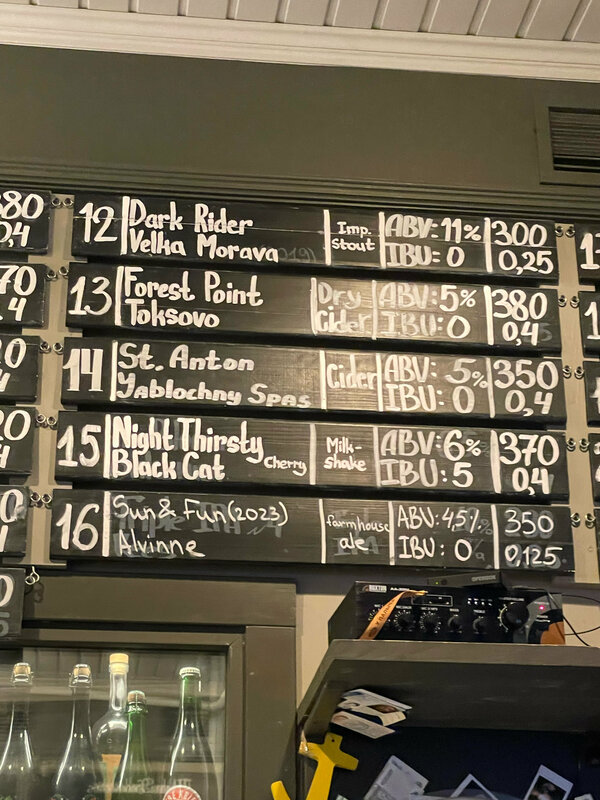 80
0,4
12 Dark Rider Imp. ABV: 11% 300
Velka Morava stout IBU: 0 0,25
70
13 Forest Point Dry ABV: 5% 380
Toksovo Cider IBU: 0 0,4
14 St. Anton Cider ABV: 5% 350
Yablochny Spas IBU: 0 0,4
15 Night Thirsty Milk- ABV: 6% 370
Black Cat Cherry shake IBU: 5 0,4
16 Sun & Fun (2023) farmhouse ABV: 4,5% 350
Alvinne ale IBU: 0 0,125